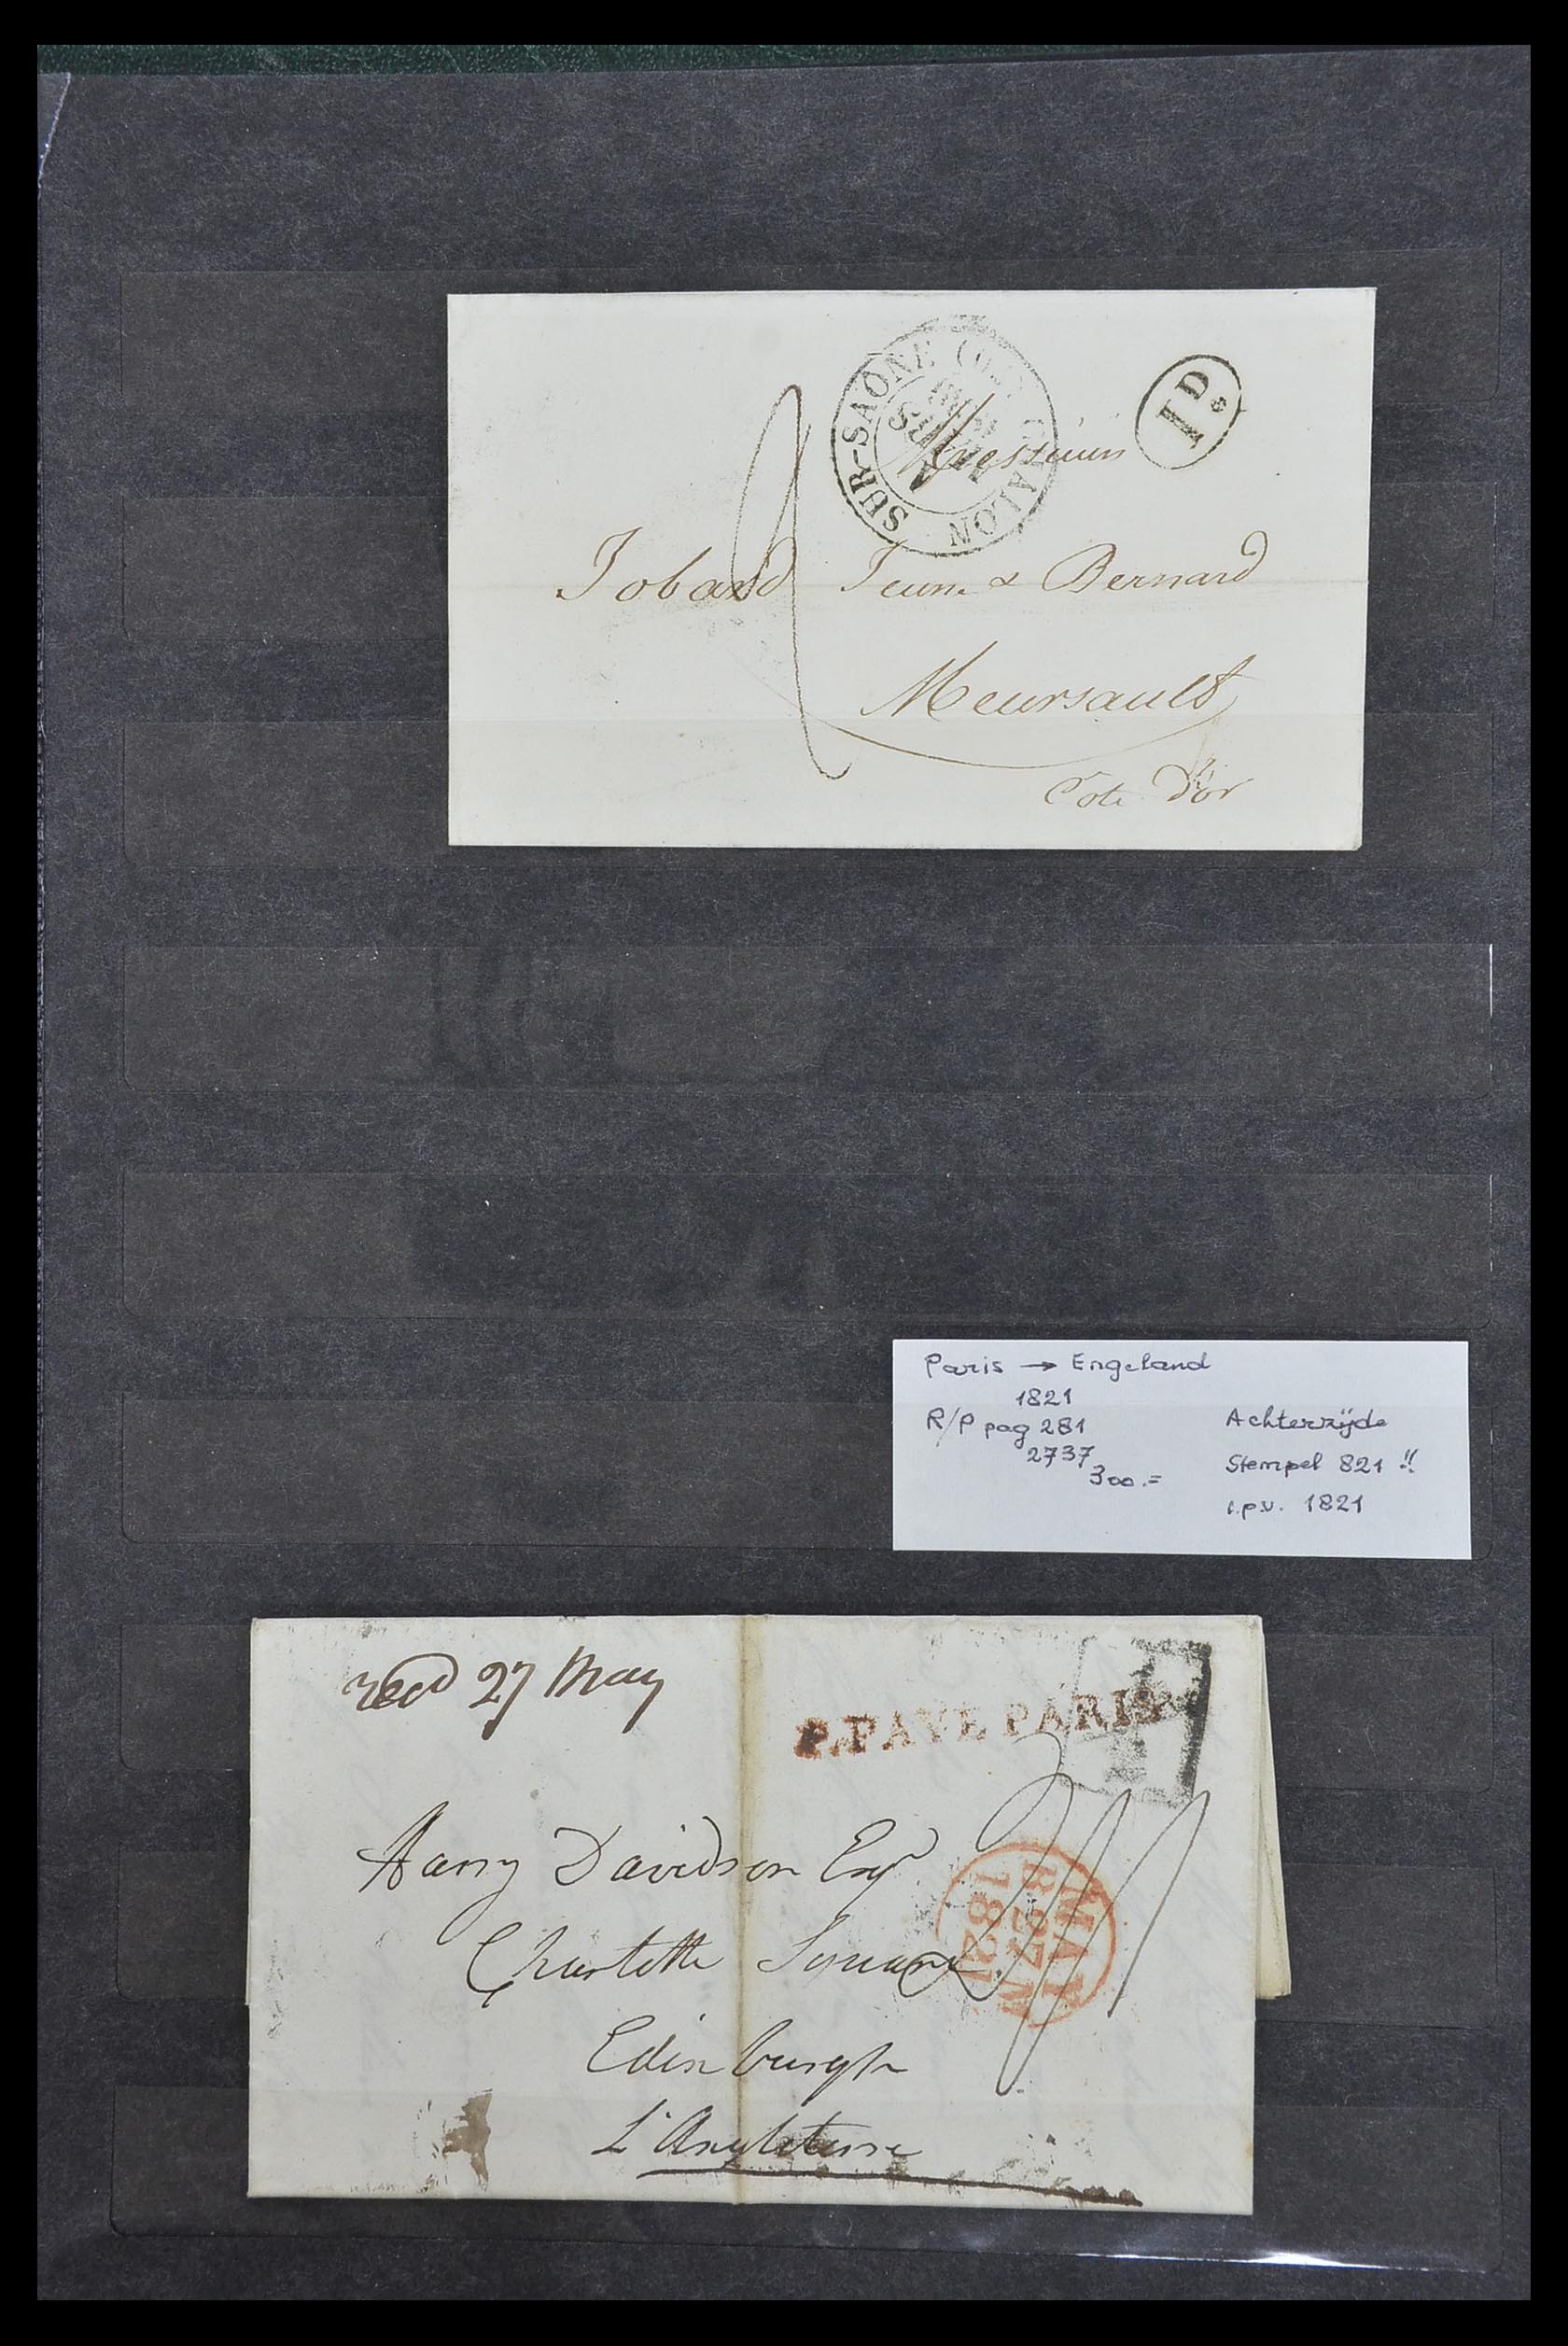 SUR-SAÔNE
ALON
1D.
Messieurs
2
Jobard Jeune & Bernard
Meursault
Côte d'or
Paris → Engeland
1821
R/P pag 281
2737
300.=
Achterzijde
Stempel 821 !!
i.p.v. 1821
recd 27 May
P.PAYÉ PARIS
Harry Davidson Esqr
Charlotte Square
Edinburgh
L'Angleterre
MAY
27
1821